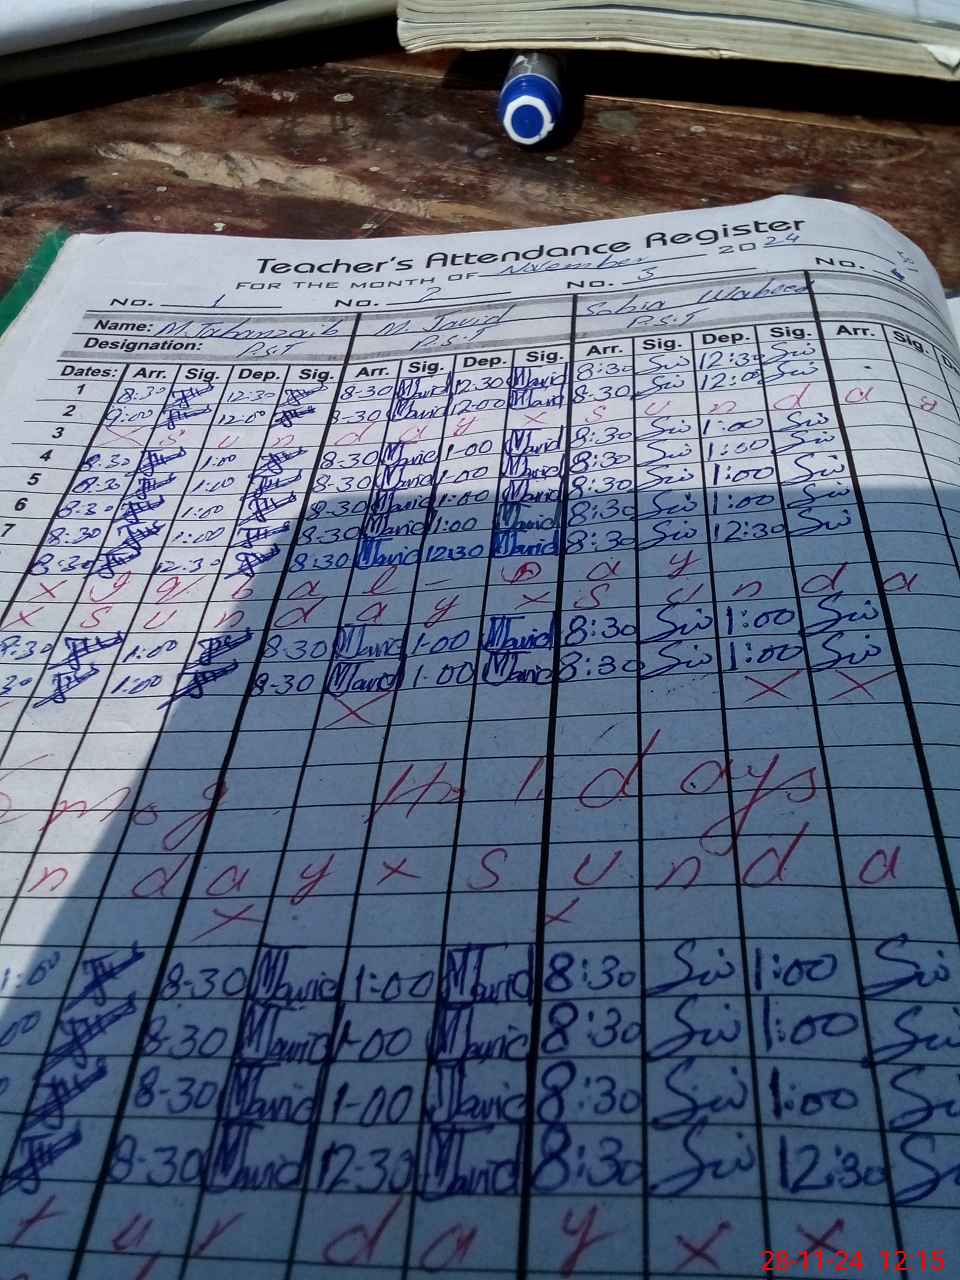 Teacher's Attendance Register
FOR THE MONTH OF November 2024
No. 1 No. 2 No. 3 No.
Name: M. Jahanzaib M. Javid Sobia Waheed
Designation: P.S.T P.S.T P.S.T
Dates: Arr. Sig. Dep. Sig. Arr. Sig. Dep. Sig. Arr. Sig. Dep. Sig. Arr. Sig.
1 8:30 12:30 8-30 MJavid 12:30 MJavid 8:30 12:30
2 9:00 12:00 8-30 MJavid 12-00 MJavid 8-30 12:00
3 x s u n d a y x s u n d a y
4 8:30 1:00 8-30 MJavid 1-00 MJavid 8:30 1:00
5 8:30 1:00 8-30 MJavid 1-00 MJavid 8:30 1:00
6 8:30 1:00 8-30 MJavid 1:00 MJavid 8:30 1:00
7 8:30 1:00 8-30 MJavid 1:00 MJavid 8:30 1:00
8:30 12:30 8:30 MJavid 12:30 MJavid 8:30 12:30
x I q b a l - D a y
x s u n d a y x s u n d a
8:30 1:00 8-30 MJavid 1-00 MJavid 8:30 1:00
30 1:00 8-30 MJavid 1-00 MJavid 8:30 1:00
x x x
Smog Holidays
n d a y x s u n d a
x x
1:00 8-30 MJavid 1:00 MJavid 8:30 1:00
00 8-30 MJavid 1-00 MJavid 8:30 1:00
8-30 MJavid 1-00 MJavid 8:30 1:00
8-30 MJavid 12-30 MJavid 8:30 12:30
t u r d a y x x
28-11-24 12:15